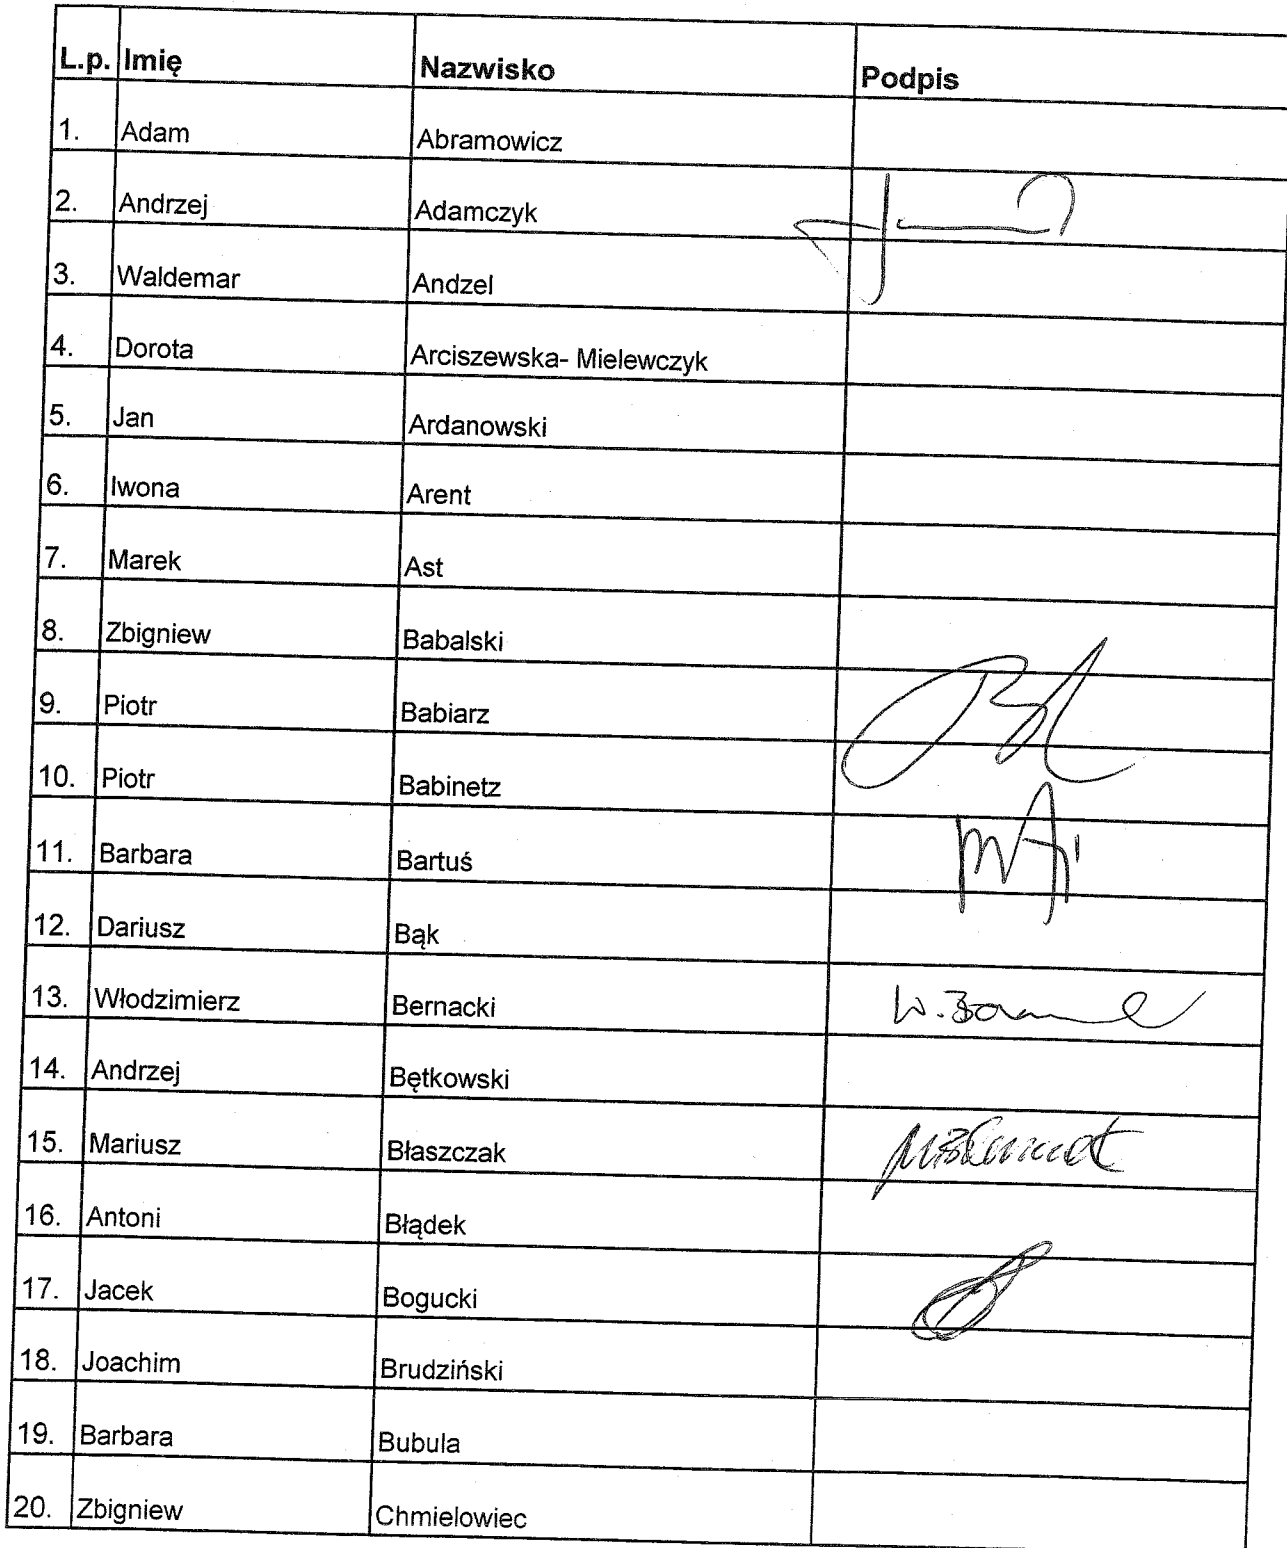 L.p. Imię Nazwisko Podpis
1. Adam Abramowicz
2. Andrzej Adamczyk
3. Waldemar Andzel
4. Dorota Arciszewska- Mielewczyk
5. Jan Ardanowski
6. Iwona Arent
7. Marek Ast
8. Zbigniew Babalski
9. Piotr Babiarz
10. Piotr Babinetz
11. Barbara Bartuś
12. Dariusz Bąk
13. Włodzimierz Bernacki
14. Andrzej Bętkowski
15. Mariusz Błaszczak
16. Antoni Błądek
17. Jacek Bogucki
18. Joachim Brudziński
19. Barbara Bubula
20. Zbigniew Chmielowiec